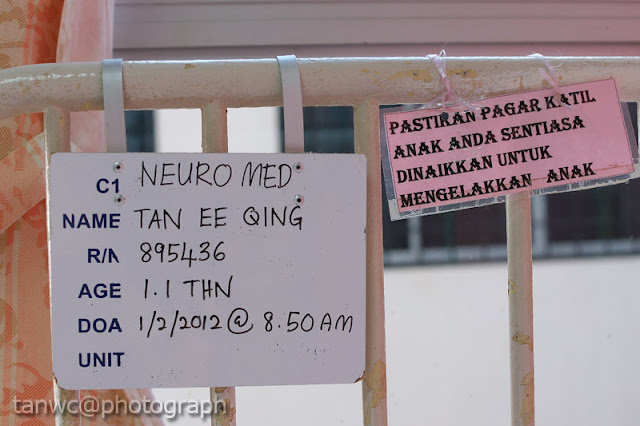 C1 NEURO MED
NAME TAN EE QING
R/N 895436
AGE 1.1 THN
DOA 1/2/2012 @ 8.50 AM
UNIT
PASTIKAN PAGAR KATIL
ANAK ANDA SENTIASA
DINAIKKAN UNTUK
MENGELAKKAN ANAK
tanwc@photograph